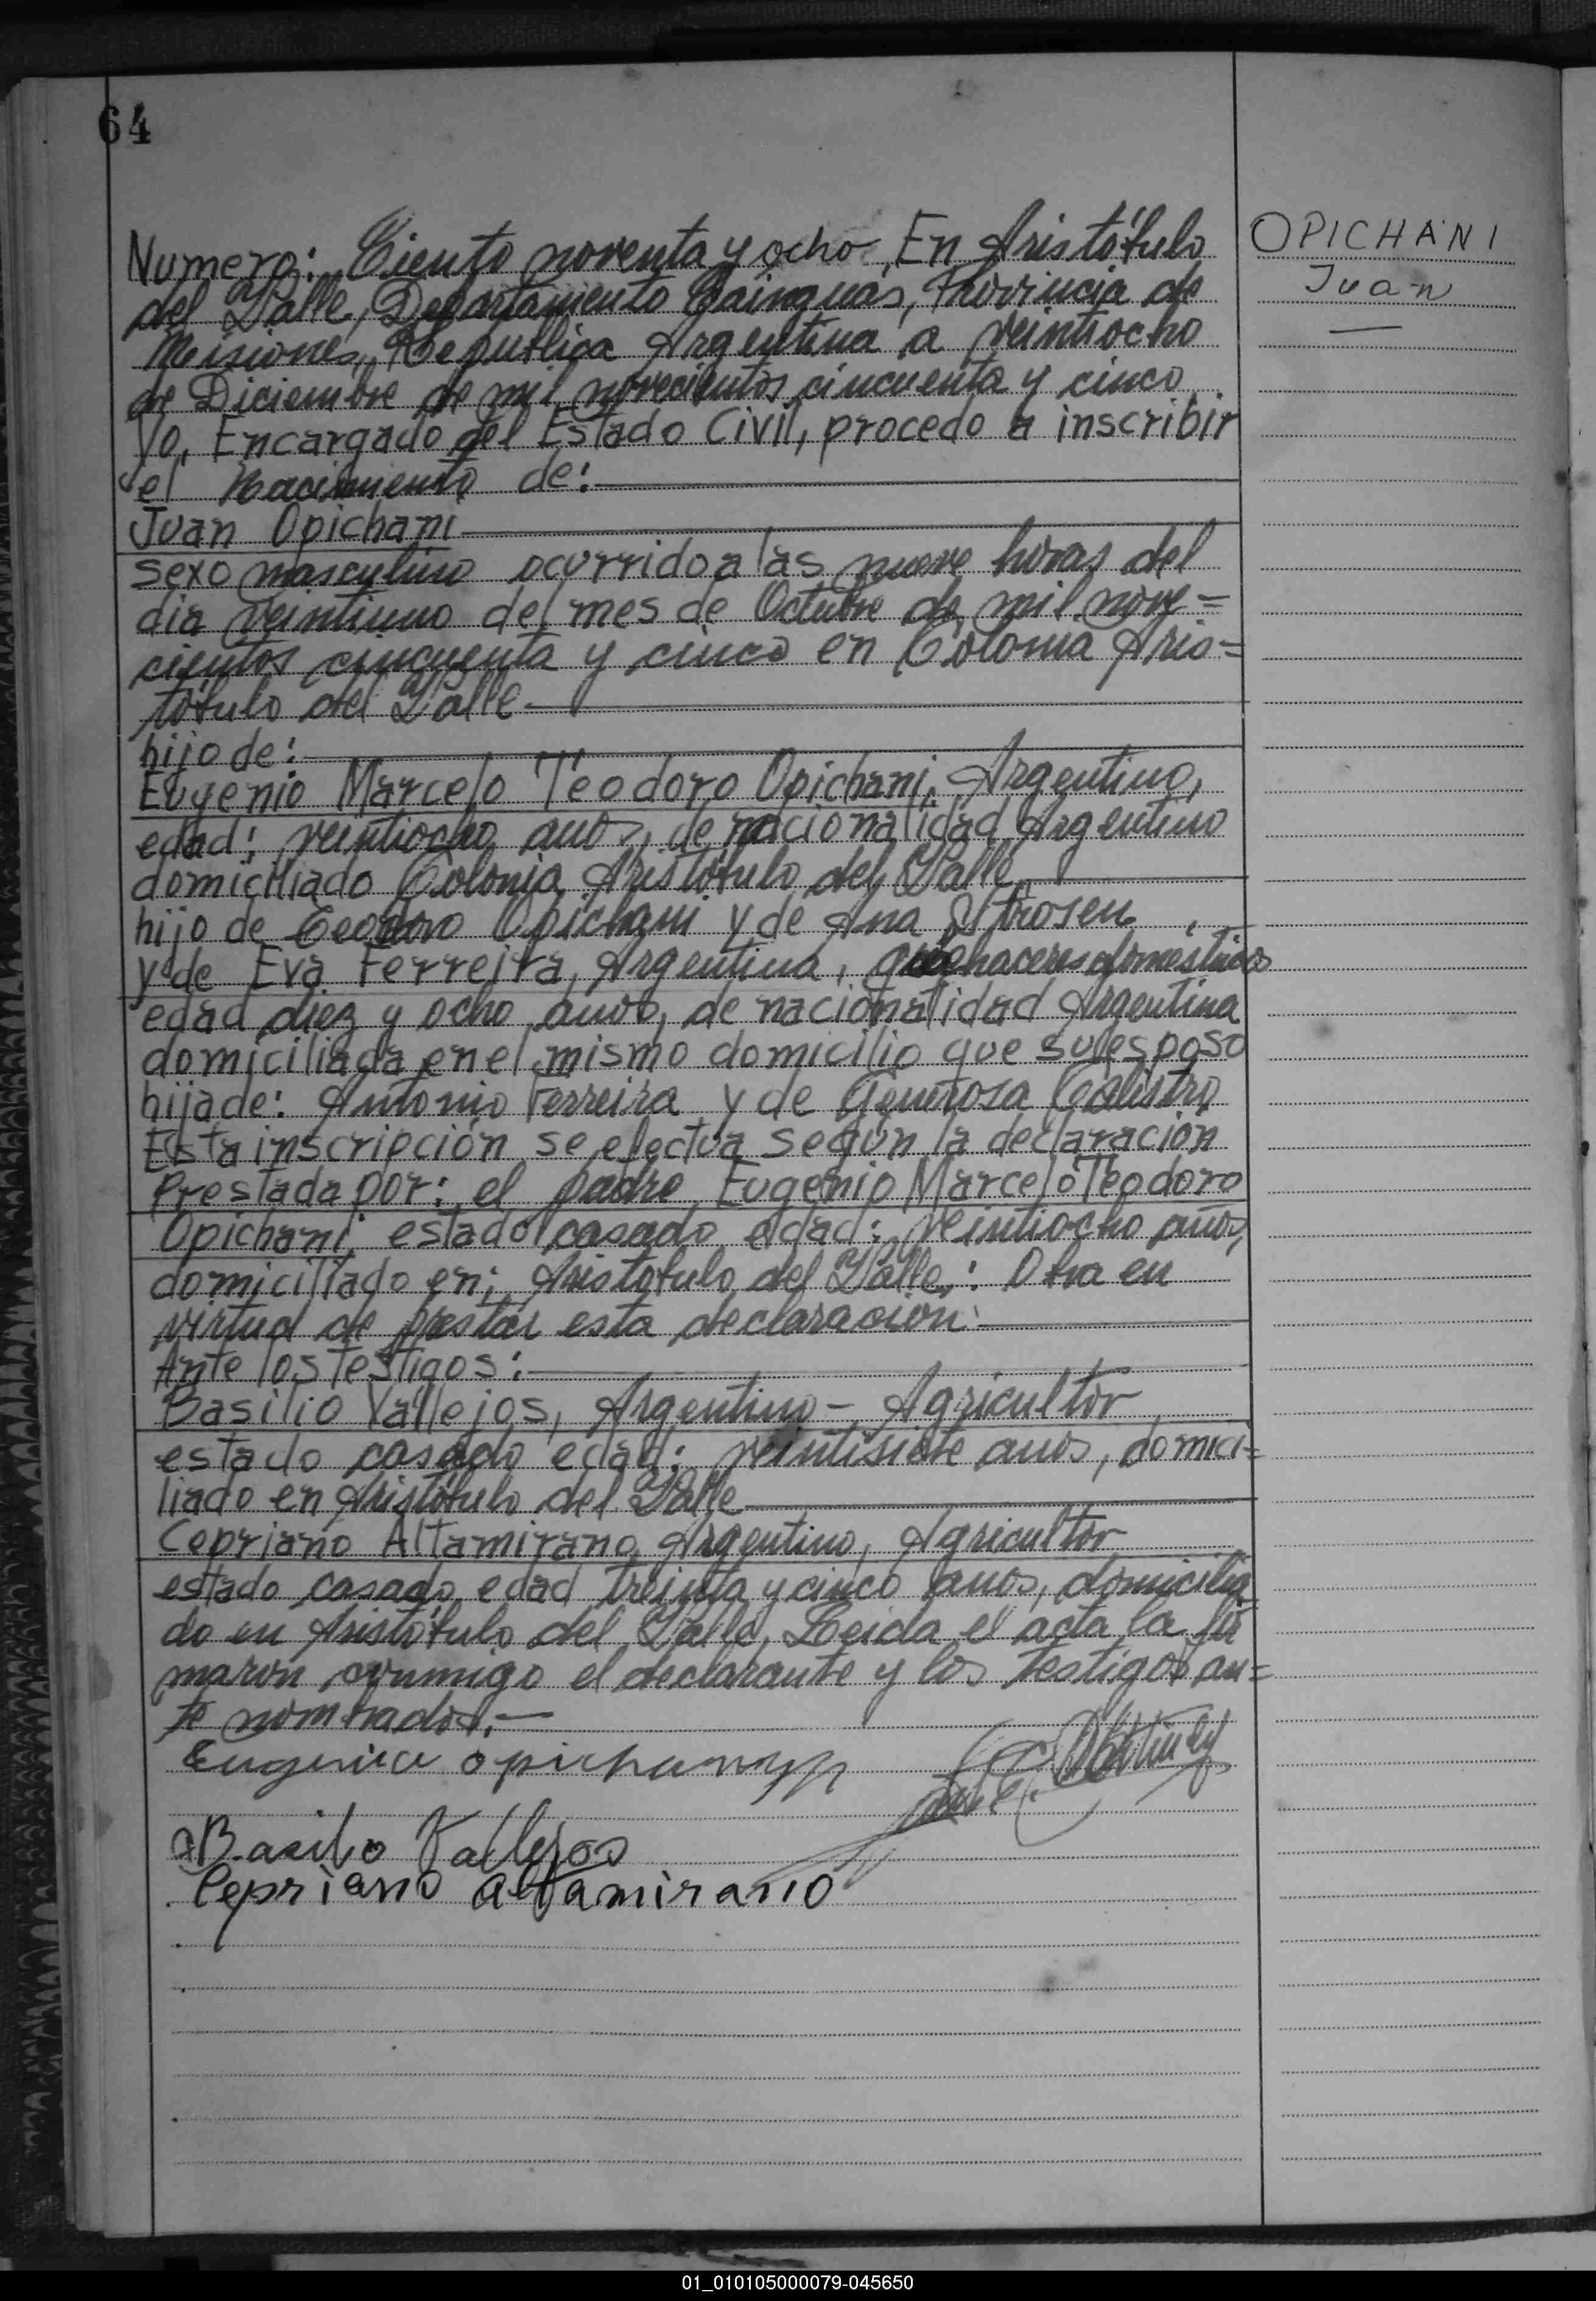 64
OPICHANI
Juan
Numero: Ciento noventa y ocho. En Aristóbulo
del Valle, Departamento Cainguas, Provincia de
Misiones, Republica Argentina a veintiocho
de Diciembre de mil novecientos cincuenta y cinco
Yo, Encargado del Estado Civil, procedo a inscribir
el Nacimiento de:
Juan Opichani
sexo masculino ocurrido a las nueve horas del
dia veintiuno del mes de Octubre de mil nove=
cientos cincuenta y cinco en Colonia Aris=
tóbulo del Valle
hijo de:
Eugenio Marcelo Teodoro Opichani, Argentino,
edad: veintiocho años, de nacionalidad Argentino
domiciliado Colonia Aristóbulo del Valle
hijo de Teodoro Opichani y de Ana
y de Eva Ferreira, Argentina, quehaceres domésticos
edad diez y ocho años, de nacionalidad Argentina
domiciliada en el mismo domicilio que su esposo
hija de: Antonio Ferreira y de Generosa Calistro
Esta inscripción se efectua según la declaración
Prestada por: el padre Eugenio Marcelo Teodoro
Opichani, estado casado edad: veintiocho años,
domiciliado en: Aristóbulo del Valle,: Obra en
virtud de prestar esta declaración
Ante los Testigos:
Basilio Vallejos, Argentino - Agricultor
estado casado edad: veintisiete años, domici=
liado en Aristóbulo del Valle
Cepriano Altamirano, Argentino, Agricultor
estado casado, edad treinta y cinco años, domicilia
do en Aristóbulo del Valle, Leida el acta la fir
maron conmigo el declarante y los testigos an=
te nombrados.-
Eugenio Opichany
Basilio Vallejos
Cepriano Altamirano
01_010105000079-045650